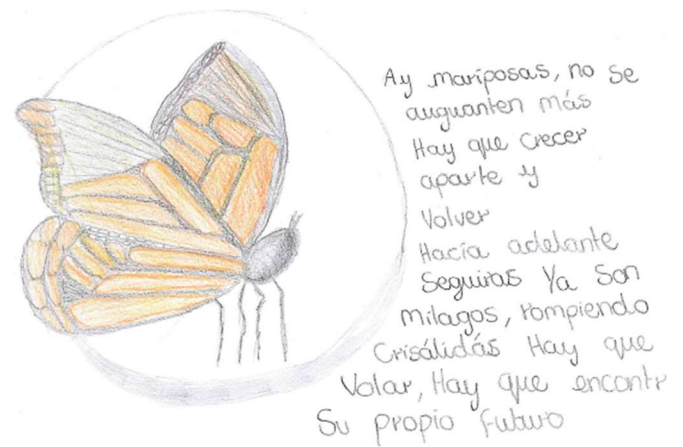 Ay mariposas, no se
auguanten más
Hay que crecer
aparte y
Volver
Hacia adelante
Seguiras Ya Son
Milagos, rompiendo
Crisálidás Hay que
Volar, Hay que encontr
Su propio futuro